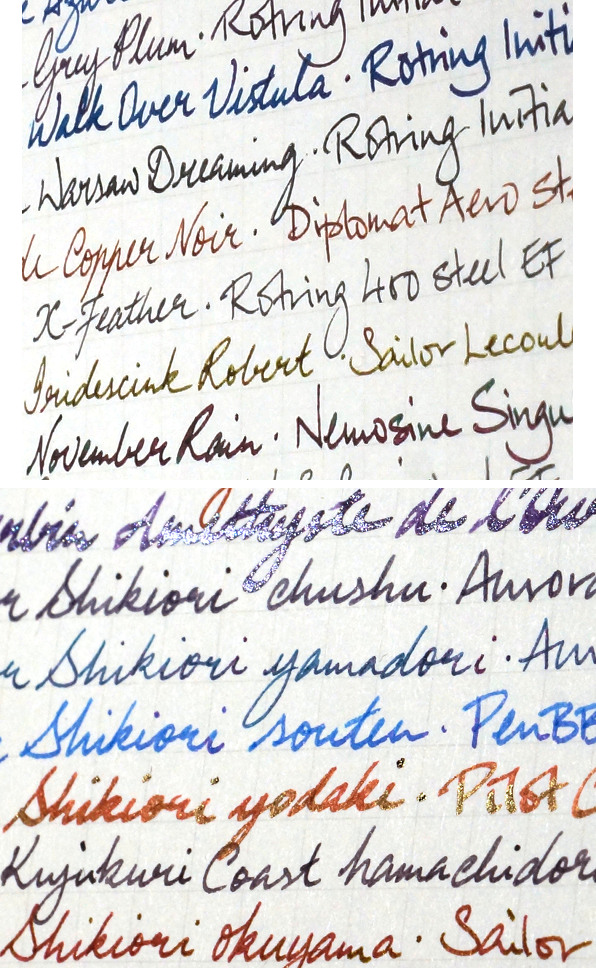 Grey Plum. Rotring Initial
Walk Over Vistula. Rotring Initi
Warsaw Dreaming. Rotring Initia
Copper Noir. Diplomat Aero Ste
X-Feather. Rotring 400 steel EF
Iridescink Robert. Sailor Lecoul
November Rain. Nemosine Singu
Amethyste de l'Ou
Shikiori chushu. Aurora
Shikiori yamadori. Au
Shikiori souten. PenBB
Shikiori yodaki. Pilot C
Kujukuri Coast hamachidori
Shikiori okuyama. Sailor